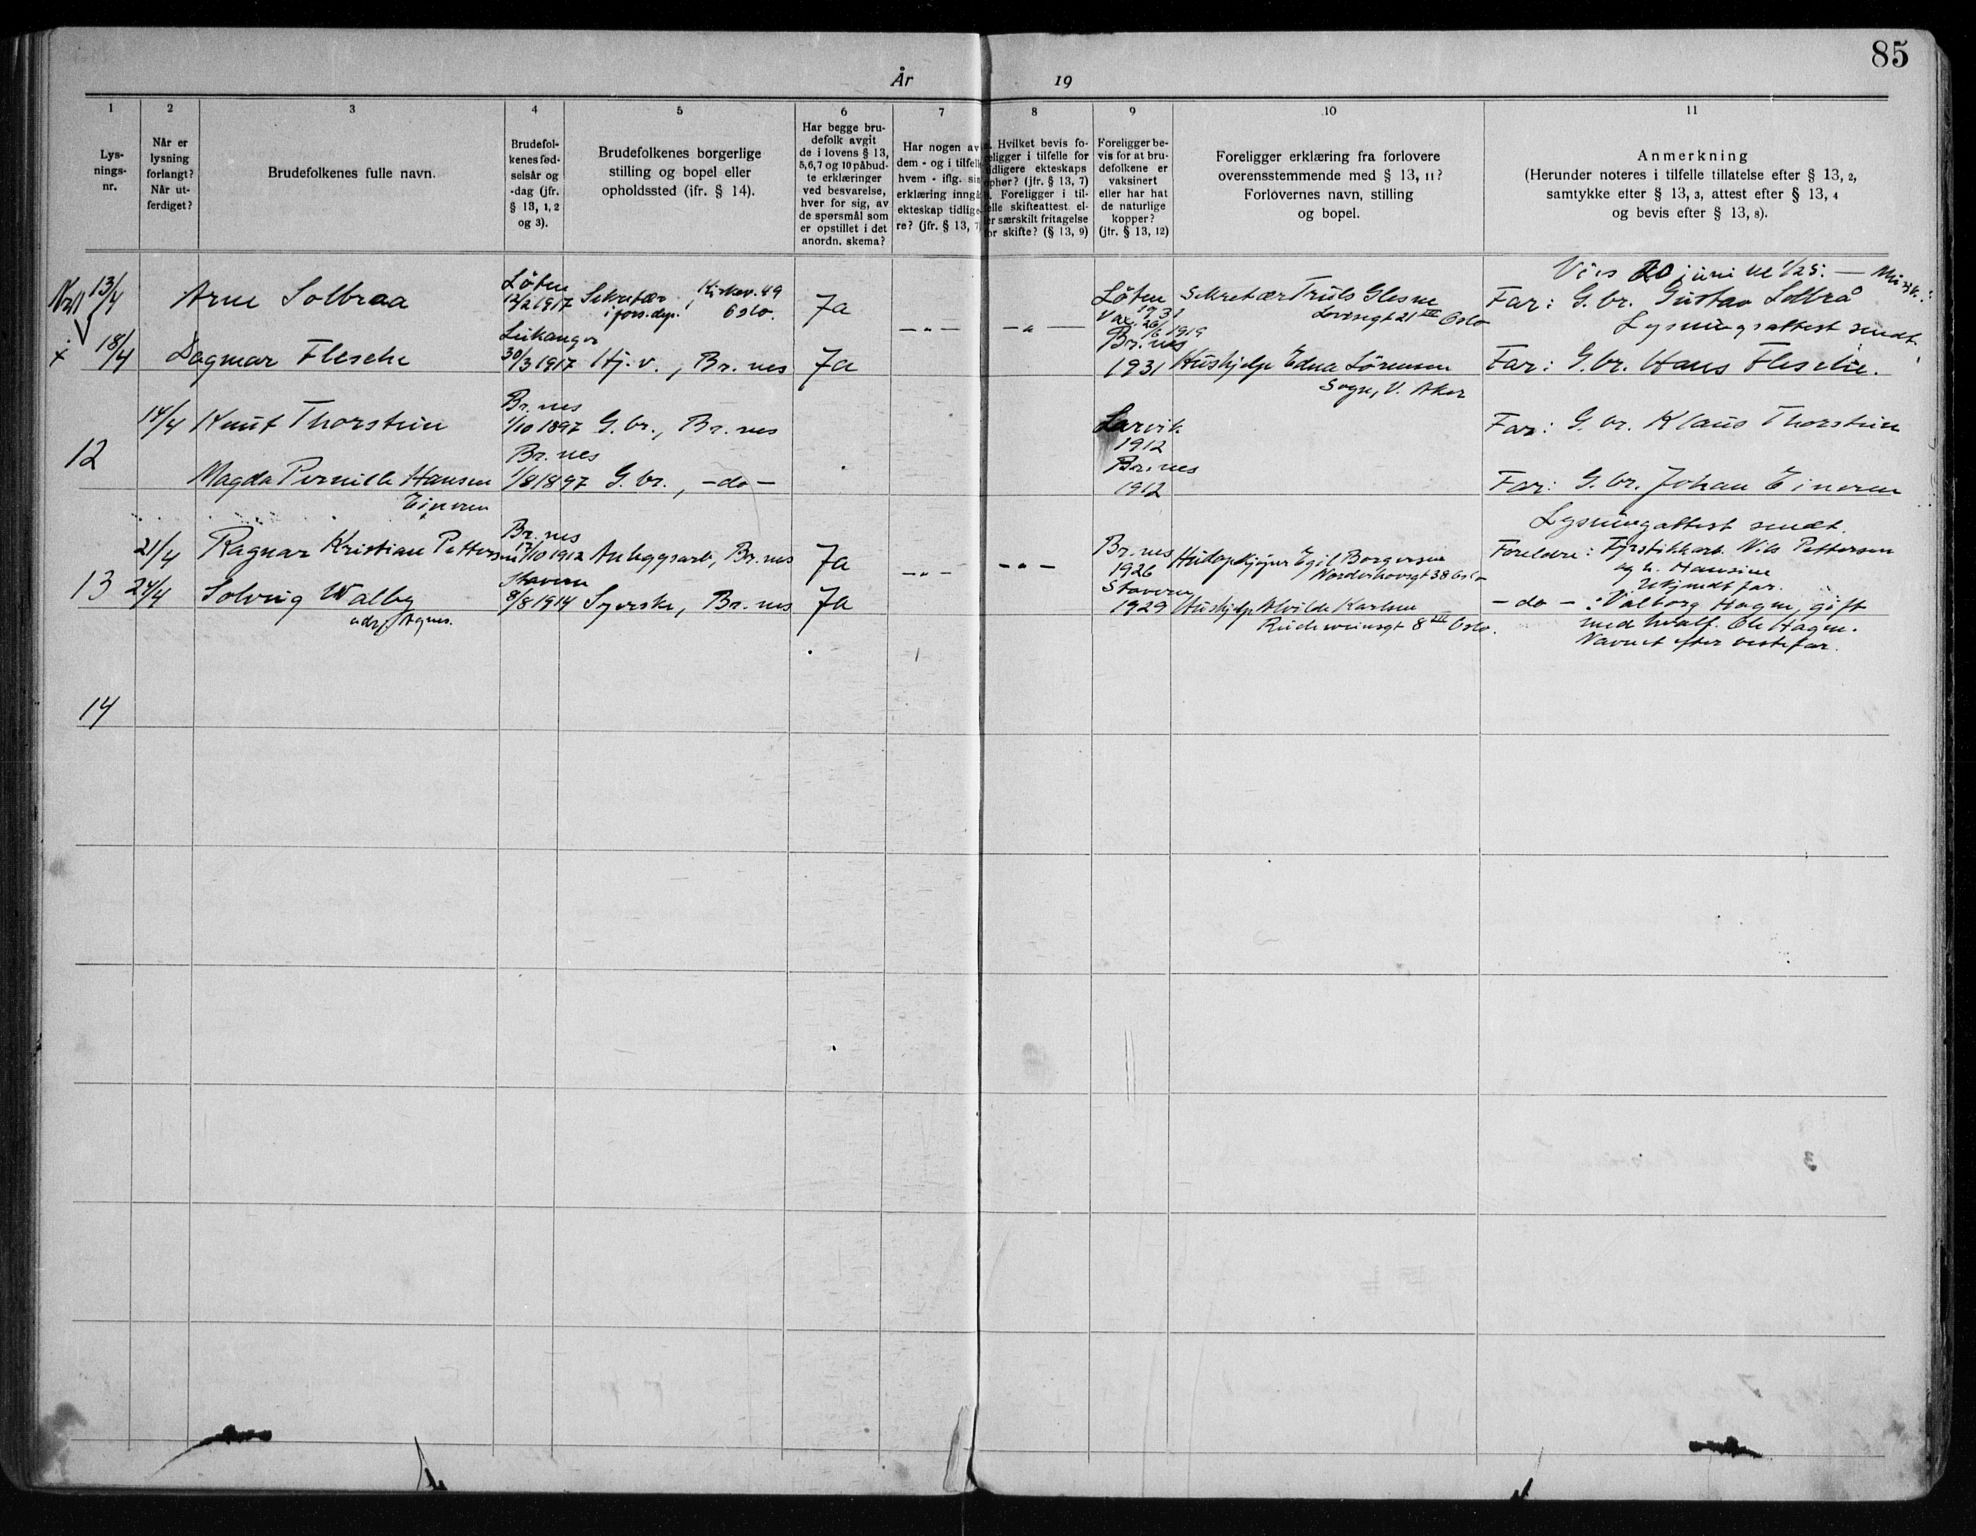 85
År 19
1 2 3 4 5 6 7 8 9 10 11
Lys-
nings-
nr.
Når er
lysning
forlangt?
Når ut-
ferdiget?
Brudefolkenes fulle navn.
Brudefol-
kenes fød-
selsår og
-dag (jfr.
§ 13, 1, 2
og 3).
Brudefolkenes borgerlige
stilling og bopel eller
opholdssted (jfr. § 14).
Har begge bru-
defolk avgit
de i lovens § 13,
5,6,7 og 10 påbud-
te erklæringer
ved besvarelse,
hver for sig, av
de spørsmål som
er opstillet i det
anordn. skema?
Har nogen av
dem - og i tilfelle
hvem - iflg. sin
erklæring inngå
ekteskap tidlige-
re? (jfr. § 13, 7)
Hvilket bevis fo-
religger i tilfelle for
tidligere ekteskaps
ophør? (jfr. § 13, 7)
Foreligger i til-
felle skifteattest el-
ler særskilt fritagelse
for skifte? (§ 13, 9)
Foreligger be-
vis for at bru-
defolkene er
vaksinert
eller har hat
de naturlige
kopper?
(jfr. § 13, 12)
Foreligger erklæring fra forlovere
overensstemmende med § 13, 11?
Forlovernes navn, stilling
og bopel.
Anmerkning
(Herunder noteres i tilfelle tillatelse efter § 13, 2,
samtykke efter § 13, 3, attest efter § 13, 4
og bevis efter § 13, 8).
Vies 20 juni kl 1/25. —
13/4 Arne Solbraa Løten 12/2 1917 Sekretær i fors.dep., Kirkev. 49 Oslo. Ja —„— —„— Løten 1931 Sekretær Truls Glesne Oslo Far: G.br. Gustav Solbrå
Lysningsattest sendt.
x 18/4 Dagmar Flesche Leikanger 30/3 1917 Hj.v., Br.nes Ja Vax. 26/6 1919 Br.nes 1931 Hushjelp Edna Sørensen Sogn, V. Aker Far: G.br. Hans Flesche.
12 14/4 Knut Thorstein Br.nes 1/10 1897 G.br., Br.nes Larvik 1912 Far: G.br. Klaus Thorstein
Magda Pernille Hansen Eineren Br.nes 1/8 1897 G.br., —do— Br.nes 1912 Far: G.br. Johan Eineren
Lysningattest sendt.
13 21/4 Ragnar Kristian Pettersen Br.nes 17/10 1912 Anleggsarb, Br.nes Ja —„— —„— Br.nes 1926 Egil Borgersen Norderhovsgt 38 Oslo Foreldre: Fyrstikkarb. Nils Pettersen
og h. Hansine
24/4 Solveig Walby adr. Agnes. Stavern 8/8 1914 Syerske, Br.nes Ja Stavern 1929 Hushjelp Alvilde Karlsen 8 III Oslo. Ukjendt far.
—do—: Valborg Hagen, gift
med hvalf. Ole Hagen.
Navnet efter bestefar.
14